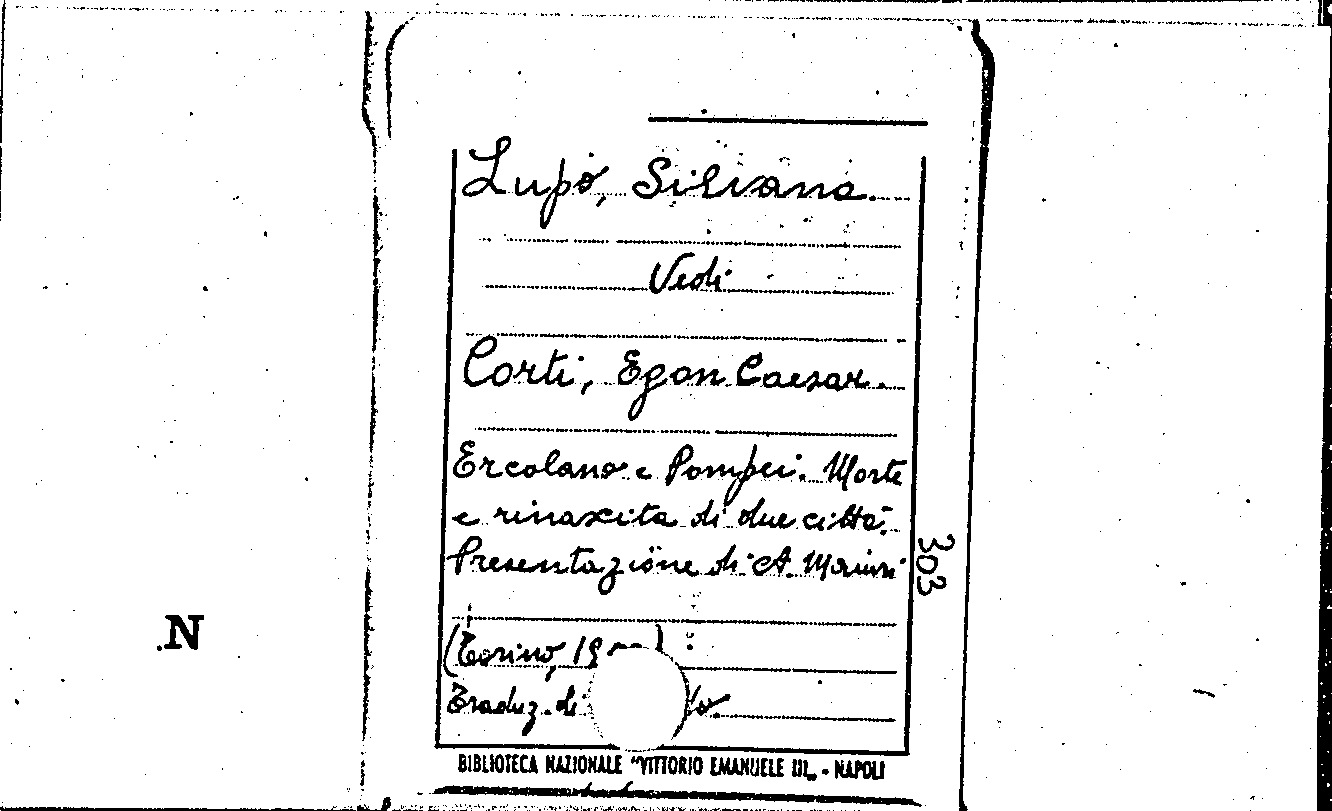 Lupo, Silvana.
Vedi
Corti, Egon Caesar.
Ercolano e Pompei. Morte
e rinascita di due città.
Presentazione di A. Maiuri
303
(Torino, 19
Traduz. di
N
BIBLIOTECA NAZIONALE "VITTORIO EMANUELE III„ - NAPOLI